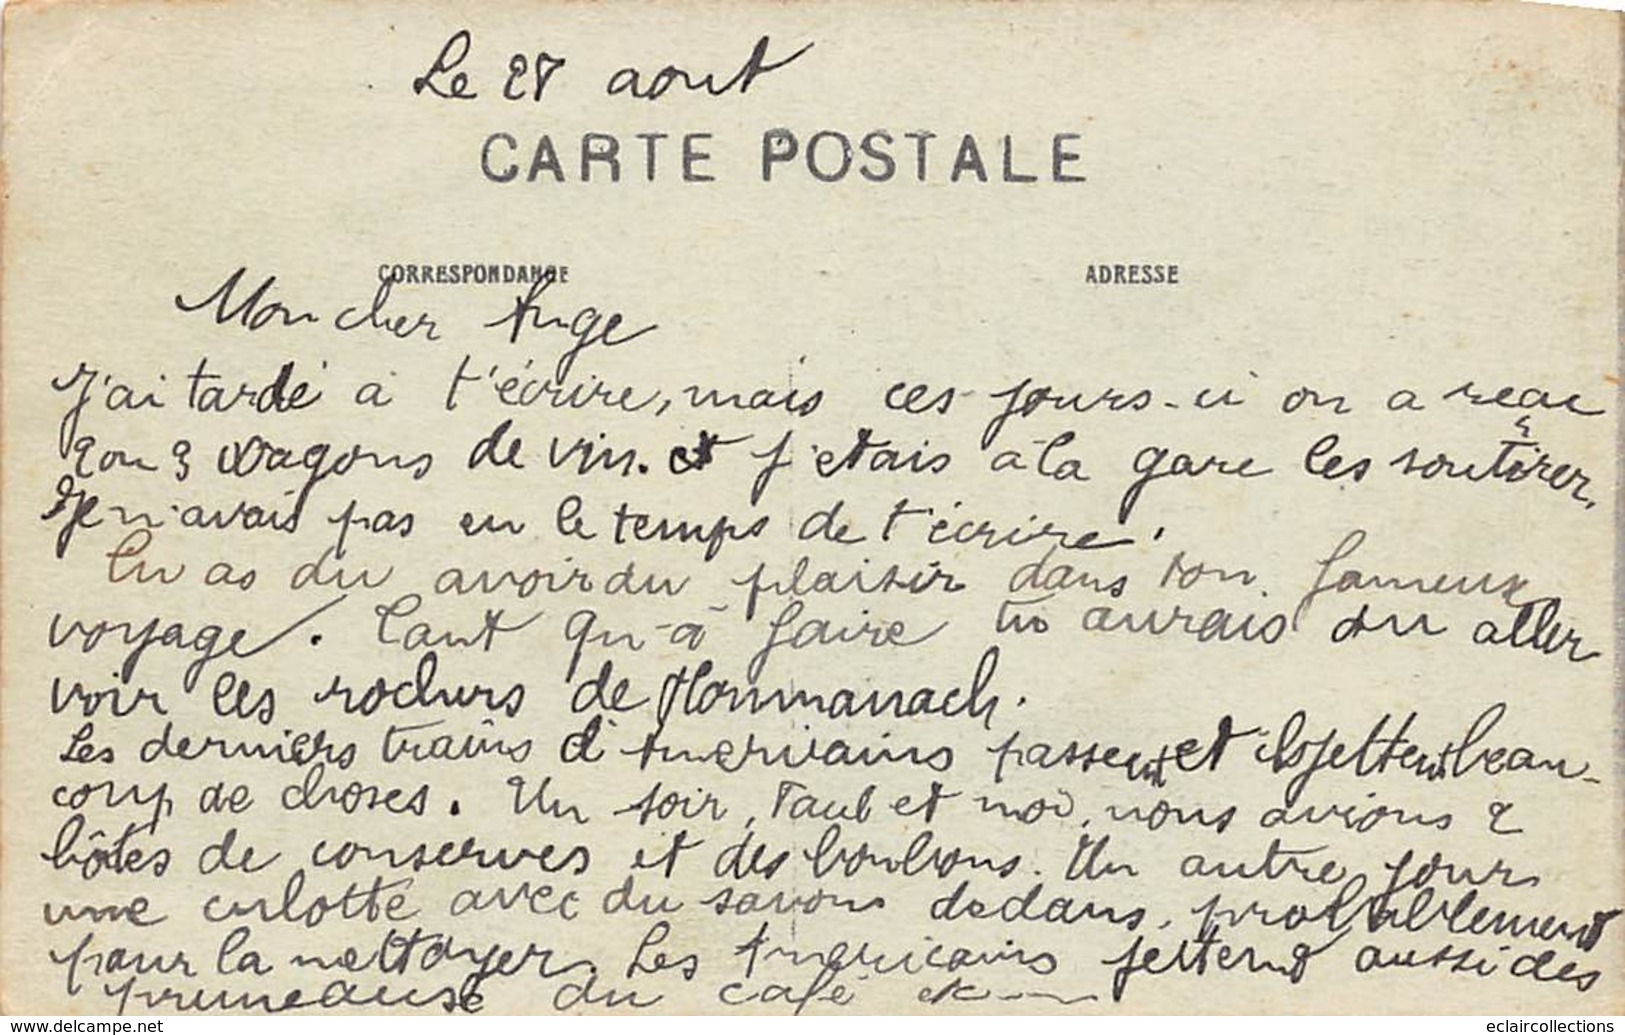 Le 27 aout
CARTE POSTALE
CORRESPONDANCE
ADRESSE
Mon cher Ange
J'ai tardé à t'écrire, mais ces jours-ci on a reçu
2 ou 3 wagons de vin. et j'etais à la gare les soutirer,
Je n'avais pas eu le temps de t'écrire.
Tu as du avoir du plaisir dans ton fameux
voyage. Tant qu-à faire tu aurais du aller
voir les rochers de
Les derniers trains d'Americains passent et ils jettent beau-
coup de choses. Un soir, Paul et moi, nous avions 2
bôites de conserves et des bonbons. Un autre jour
une culotte avec du savon dedans, probablement
pour la nettoyer. Les Américains jettent aussi des
pruneause du café
www.delcampe.net
eclaircollections